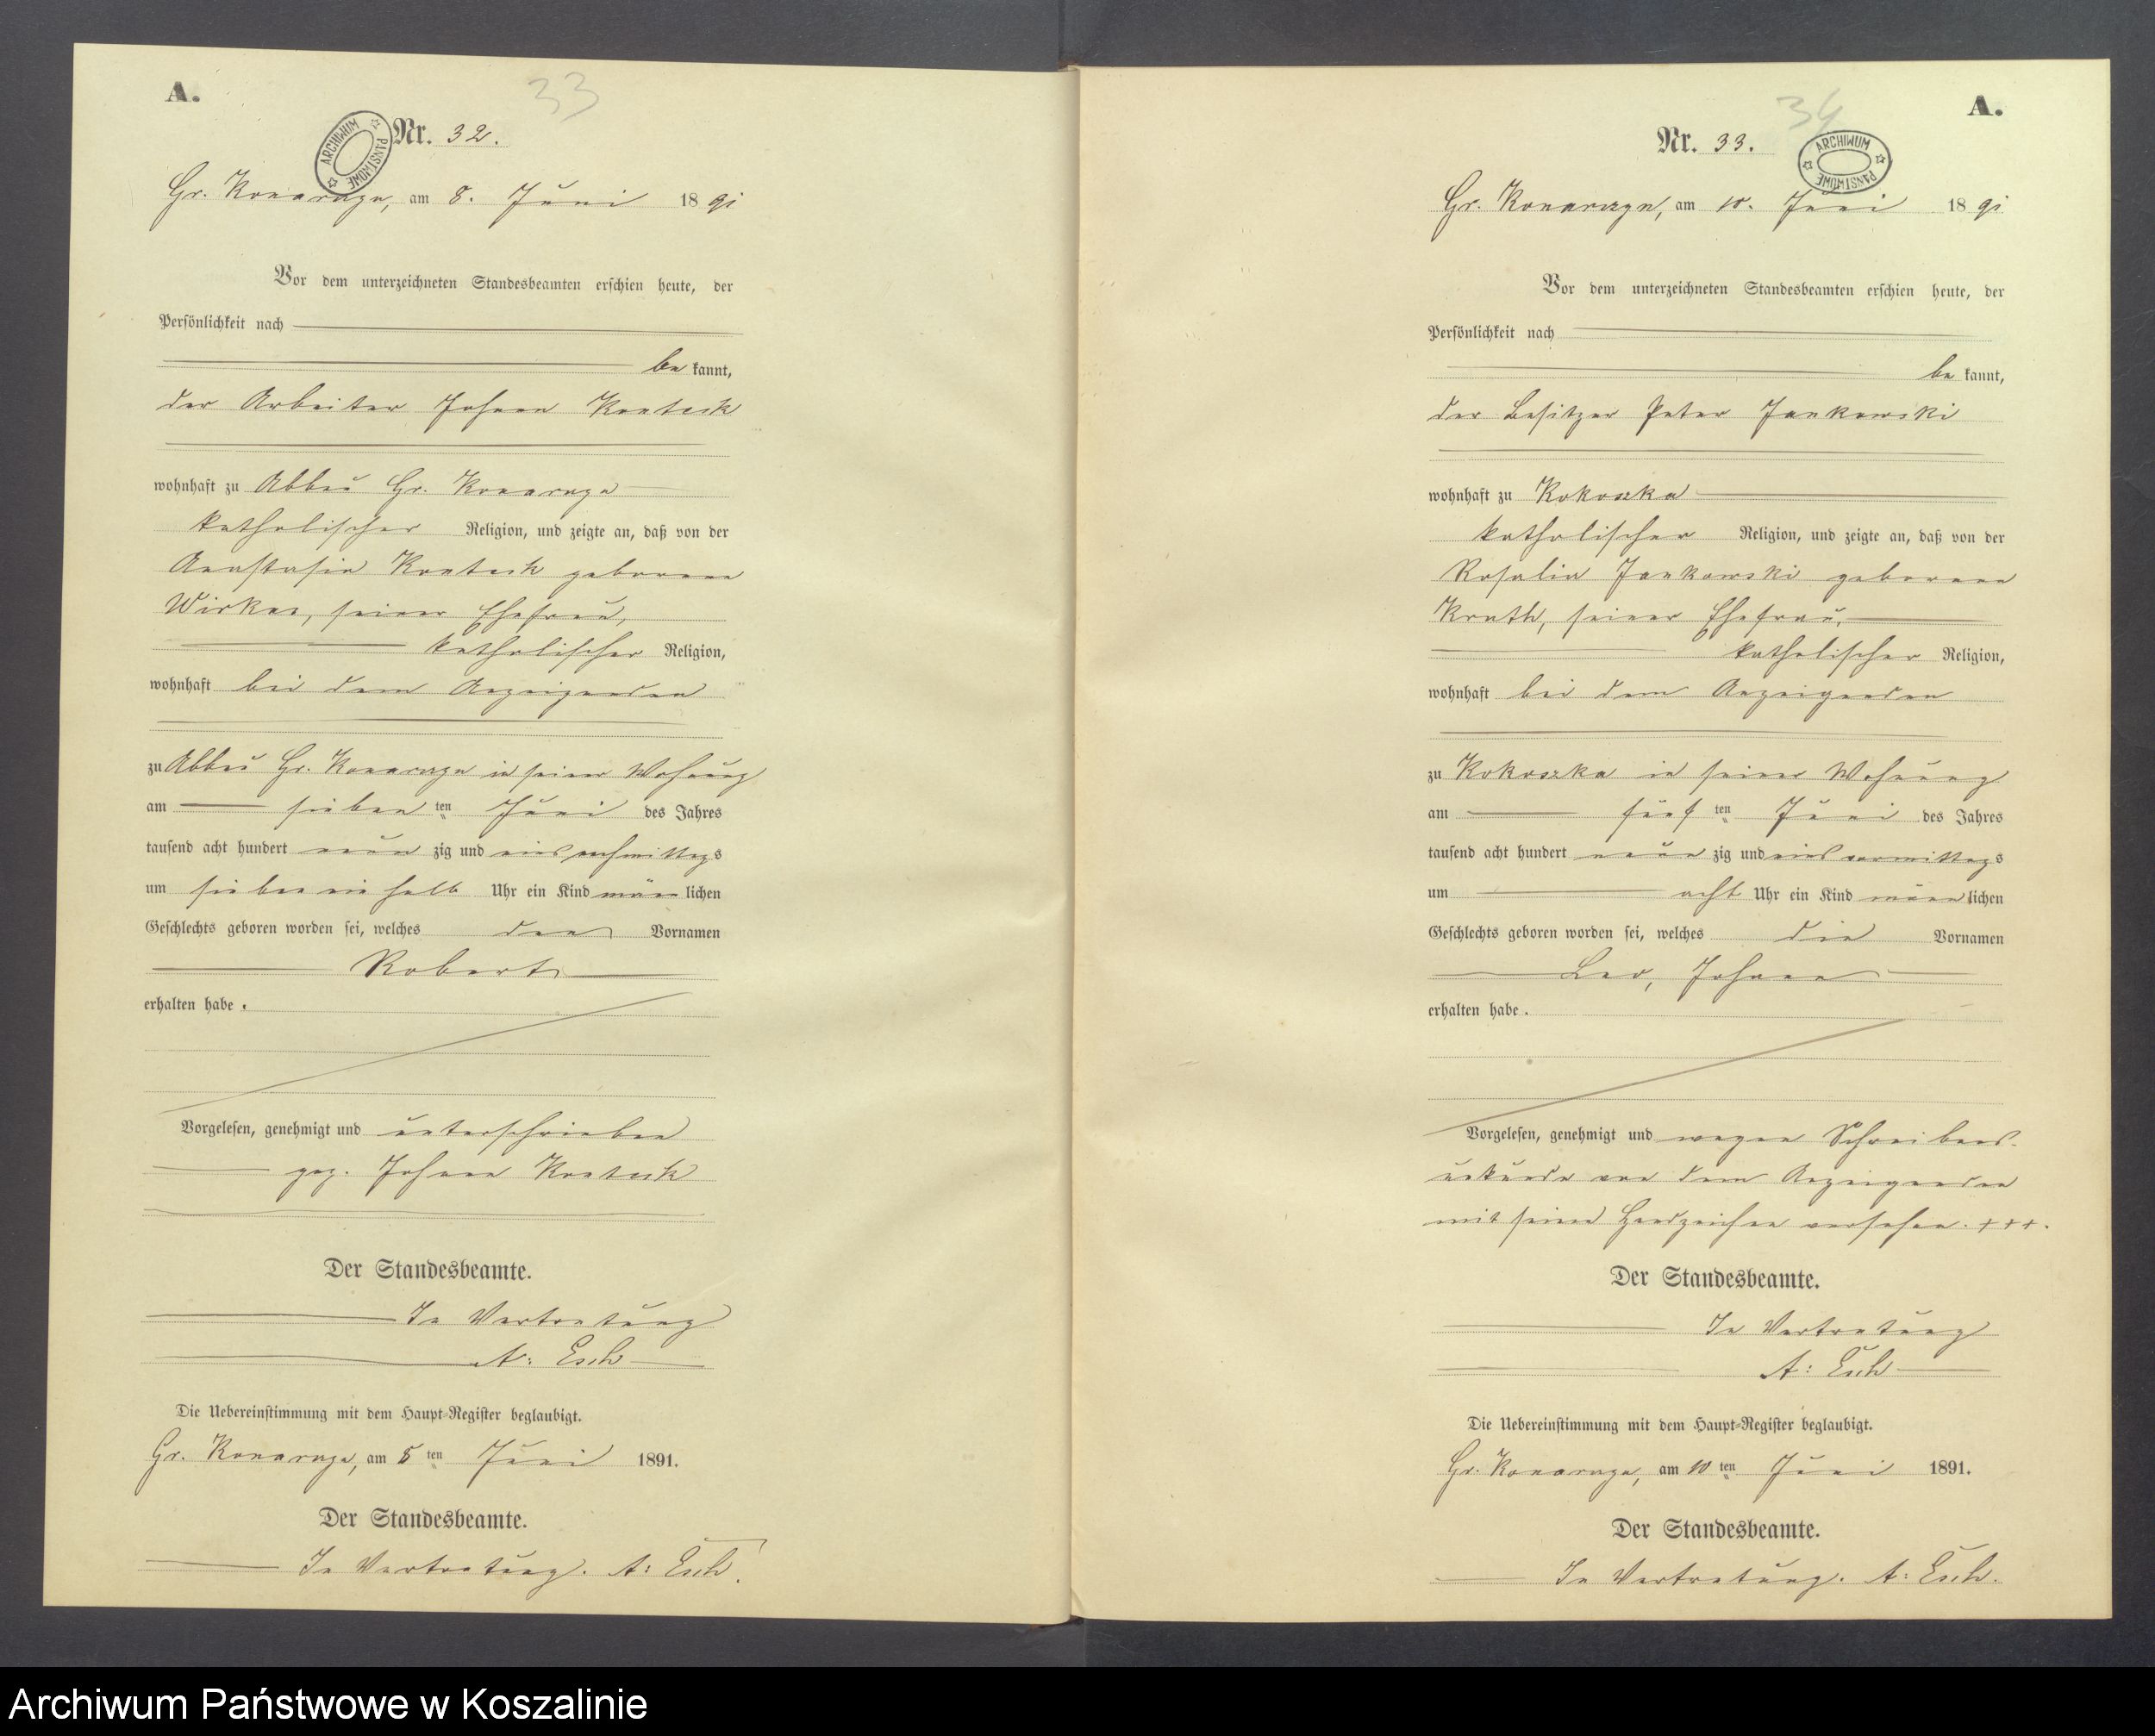 A.
33
Nr. 32.
ARCHIWUM PAŃSTWOWE
Gr. Konarczyn, am 8. Juni 1891
Vor dem unterzeichneten Standesbeamten erschien heute, der
Persönlichkeit nach
be kannt,
der Arbeiter Johann
wohnhaft zu Abbau Gr. Konarczyn
katholischer Religion, und zeigte an, daß von der
Anastasia geborene
seiner Ehefrau,
katholischer Religion,
wohnhaft bei dem Anzeigenden
zu Abbau Gr. Konarczyn in seiner Wohnung
am sieben ten Juni des Jahres
tausend acht hundert neun zig und eins nachmittags
um sieben ein halb Uhr ein Kind männ lichen
Geschlechts geboren worden sei, welches den Vornamen
Robert
erhalten habe.
Vorgelesen, genehmigt und unterschrieben
gez. Johann
Der Standesbeamte.
In Vertretung
A: Esch
Die Uebereinstimmung mit dem Haupt-Register beglaubigt.
Gr. Konarczyn, am 8 ten Juni 1891.
Der Standesbeamte.
In Vertretung. A: Esch.
A.
34
Nr. 33.
ARCHIWUM PAŃSTWOWE
Gr. Konarczyn, am 10. Juni 1891
Vor dem unterzeichneten Standesbeamten erschien heute, der
Persönlichkeit nach
be kannt,
der Besitzer Peter Jankowski
wohnhaft zu Kokoszka
katholischer Religion, und zeigte an, daß von der
Rosalia Jankowski geborene
seiner Ehefrau,
katholischer Religion,
wohnhaft bei dem Anzeigenden
zu Kokoszka in seiner Wohnung
am fünf ten Juni des Jahres
tausend acht hundert neun zig und eins vormittags
um acht Uhr ein Kind männ lichen
Geschlechts geboren worden sei, welches die Vornamen
Leo, Johann
erhalten habe.
Vorgelesen, genehmigt und wegen Schreibens-
unkunde von dem Anzeigenden
mit seinem Handzeichen versehen. +++.
Der Standesbeamte.
In Vertretung
A: Esch
Die Uebereinstimmung mit dem Haupt-Register beglaubigt.
Gr. Konarczyn, am 10 ten Juni 1891.
Der Standesbeamte.
In Vertretung. A: Esch.
Archiwum Państwowe w Koszalinie